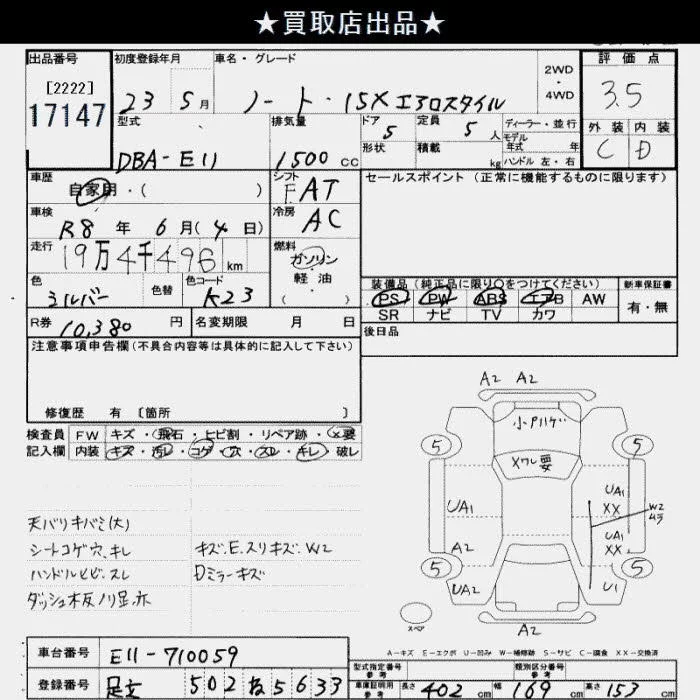 ★買取店出品★
出品番号 初度登録年月 車名・グレード 2WD・4WD 評価点
[2222]
17147 23 5月 ノート・15Xエアロスタイル 3.5
型式 排気量 ドア 5 定員 5人 ディーラー・並行 外装 内装
DBA-E11 1500cc 形状 積載 kg モデル年式 年 C D
ハンドル 左・右
車歴 自家用・( ) シフト FAT セールスポイント(正常に機能するものに限ります)
車検 R8年 6月(4日) 冷房 AC
走行 19万4千496km 燃料 ガソリン 軽油 ( )
色 シルバー 色替 色コード K23 装備品(純正品に限り○をつけてください) 新車保証書
PS PW ABS エアB AW 有・無
R券 10,380円 名変期限 月 日 SR ナビ TV カワ
注意事項申告欄(不具合内容等は具体的に記入して下さい) 後日品
修復歴 有 [箇所 ]
検査員 FW キズ・飛石・ヒビ割・リペア跡・×要
記入欄 内装 キズ・汚レ・コゲ・穴・スレ・キレ・破レ
A2 A2
小P ハゲ
5 5
Xワレ要
UA1 UA1
XX W2
ムラ
UA1
XX
A2
5 5
UA2 U1
スペア A2
天バリキバミ(大)
シートコゲ穴、キレ キズ.E.スリキズ.W2
ハンドルヒビ.スレ Dミラーキズ
ダッシュ木板ノリ显亦
A-キズ E-エクボ U-凹み W-補修跡 S-サビ C-腐食 XX-交換済
車台番号 E11-710059
型式指定番号 参考 類別区分番号 参考
登録番号 足立 502 ね 5633
車庫証明用参考 長さ 402cm 幅 169cm 高さ 153cm